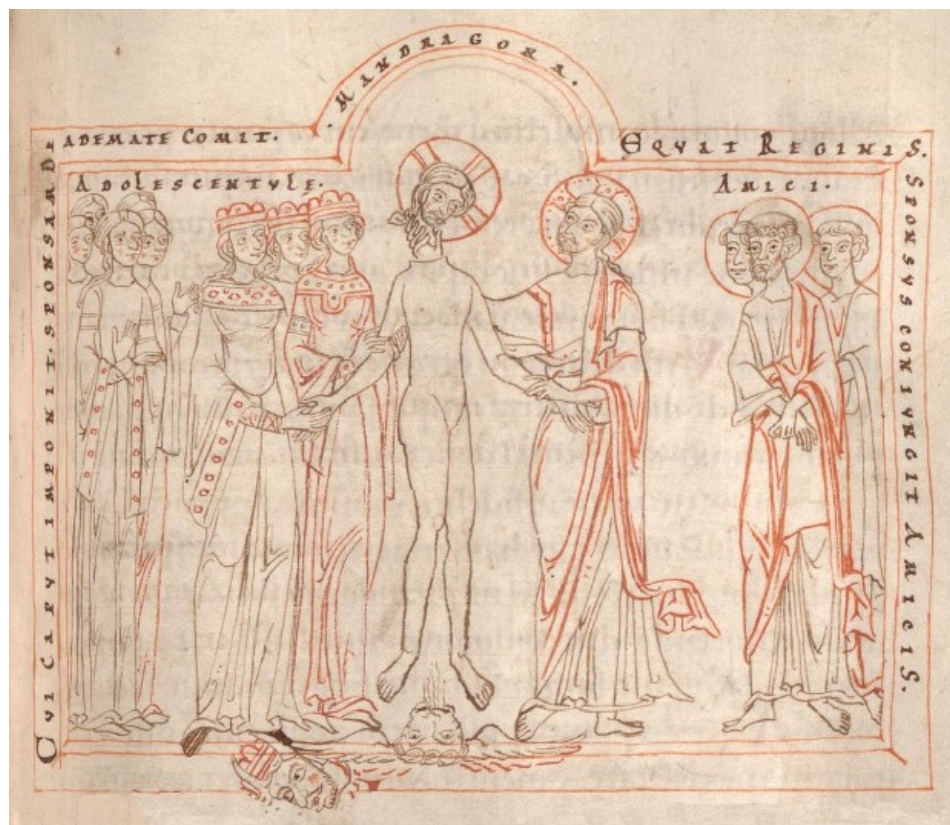 MANDRAGORA.
CVI CAPVT IMPONIT. SPONSAM DI
ADEMATE COMIT.
EQVAT REGINIS.
SPONSVS CONIVNGIT AMICIS.
ADOLESCENTVLE.
AMICI.